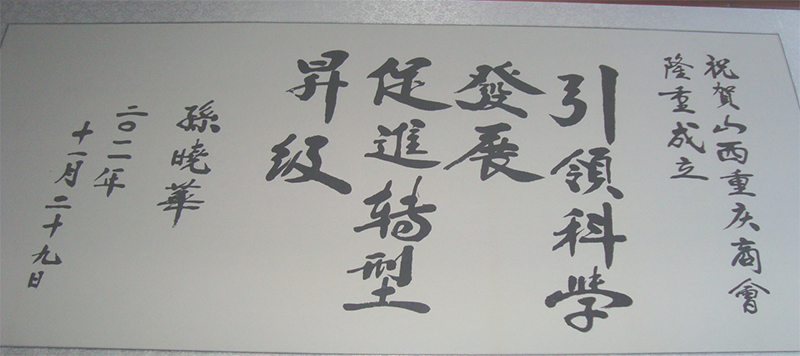 祝賀山西重庆商會
隆重成立
引領科學
發展
促進转型
昇级
孫曉華
二〇一一年
十一月二十九日